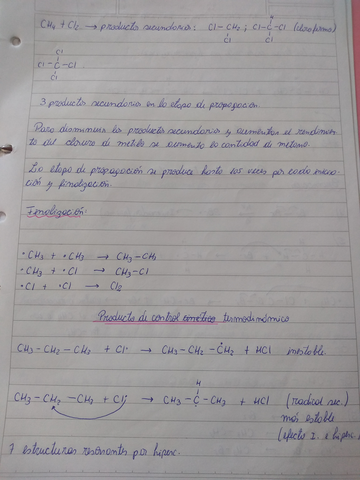 CH₄ + Cl₂ → productos secundarios: Cl-CH₂ ; Cl-C-Cl (cloroformo)
H
Cl Cl
Cl
Cl-C-Cl
Cl
3 productos secundarios en la etapa de propagación
Para disminuir los productos secundarios y aumentar el rendimien-
to del cloruro de metilo se aumenta la cantidad de metano.
La etapa de propagación se produce hasta 10⁶ veces por cada inicia-
ción y finalización.
Finalización:
·CH₃ + ·CH₃ → CH₃-CH₃
·CH₃ + ·Cl → CH₃-Cl
·Cl + ·Cl → Cl₂
Producto de control cinético termodinámico
CH₃-CH₂-CH₃ + Cl· → CH₃-CH₂-ĊH₂ + HCl inestable.
H
CH₃-CH₂-CH₃ + Cl· → CH₃-Ċ-CH₃ + HCl (radical sec.)
más estable
(efecto I. e hiperc.
7 estructuras resonantes por hiperc.